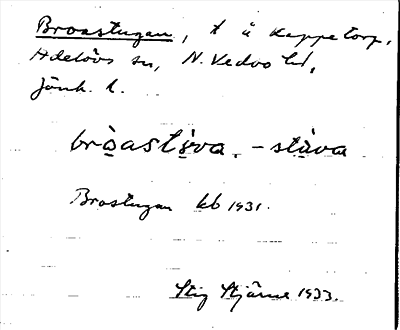 Broastugan, t å Kappetorp,
Adelövs sn, N. Vedbo hd,
Jönk. l.
bròastùva, -stàva
Brostugan kb 1931.
Stig Stjärne 1933.